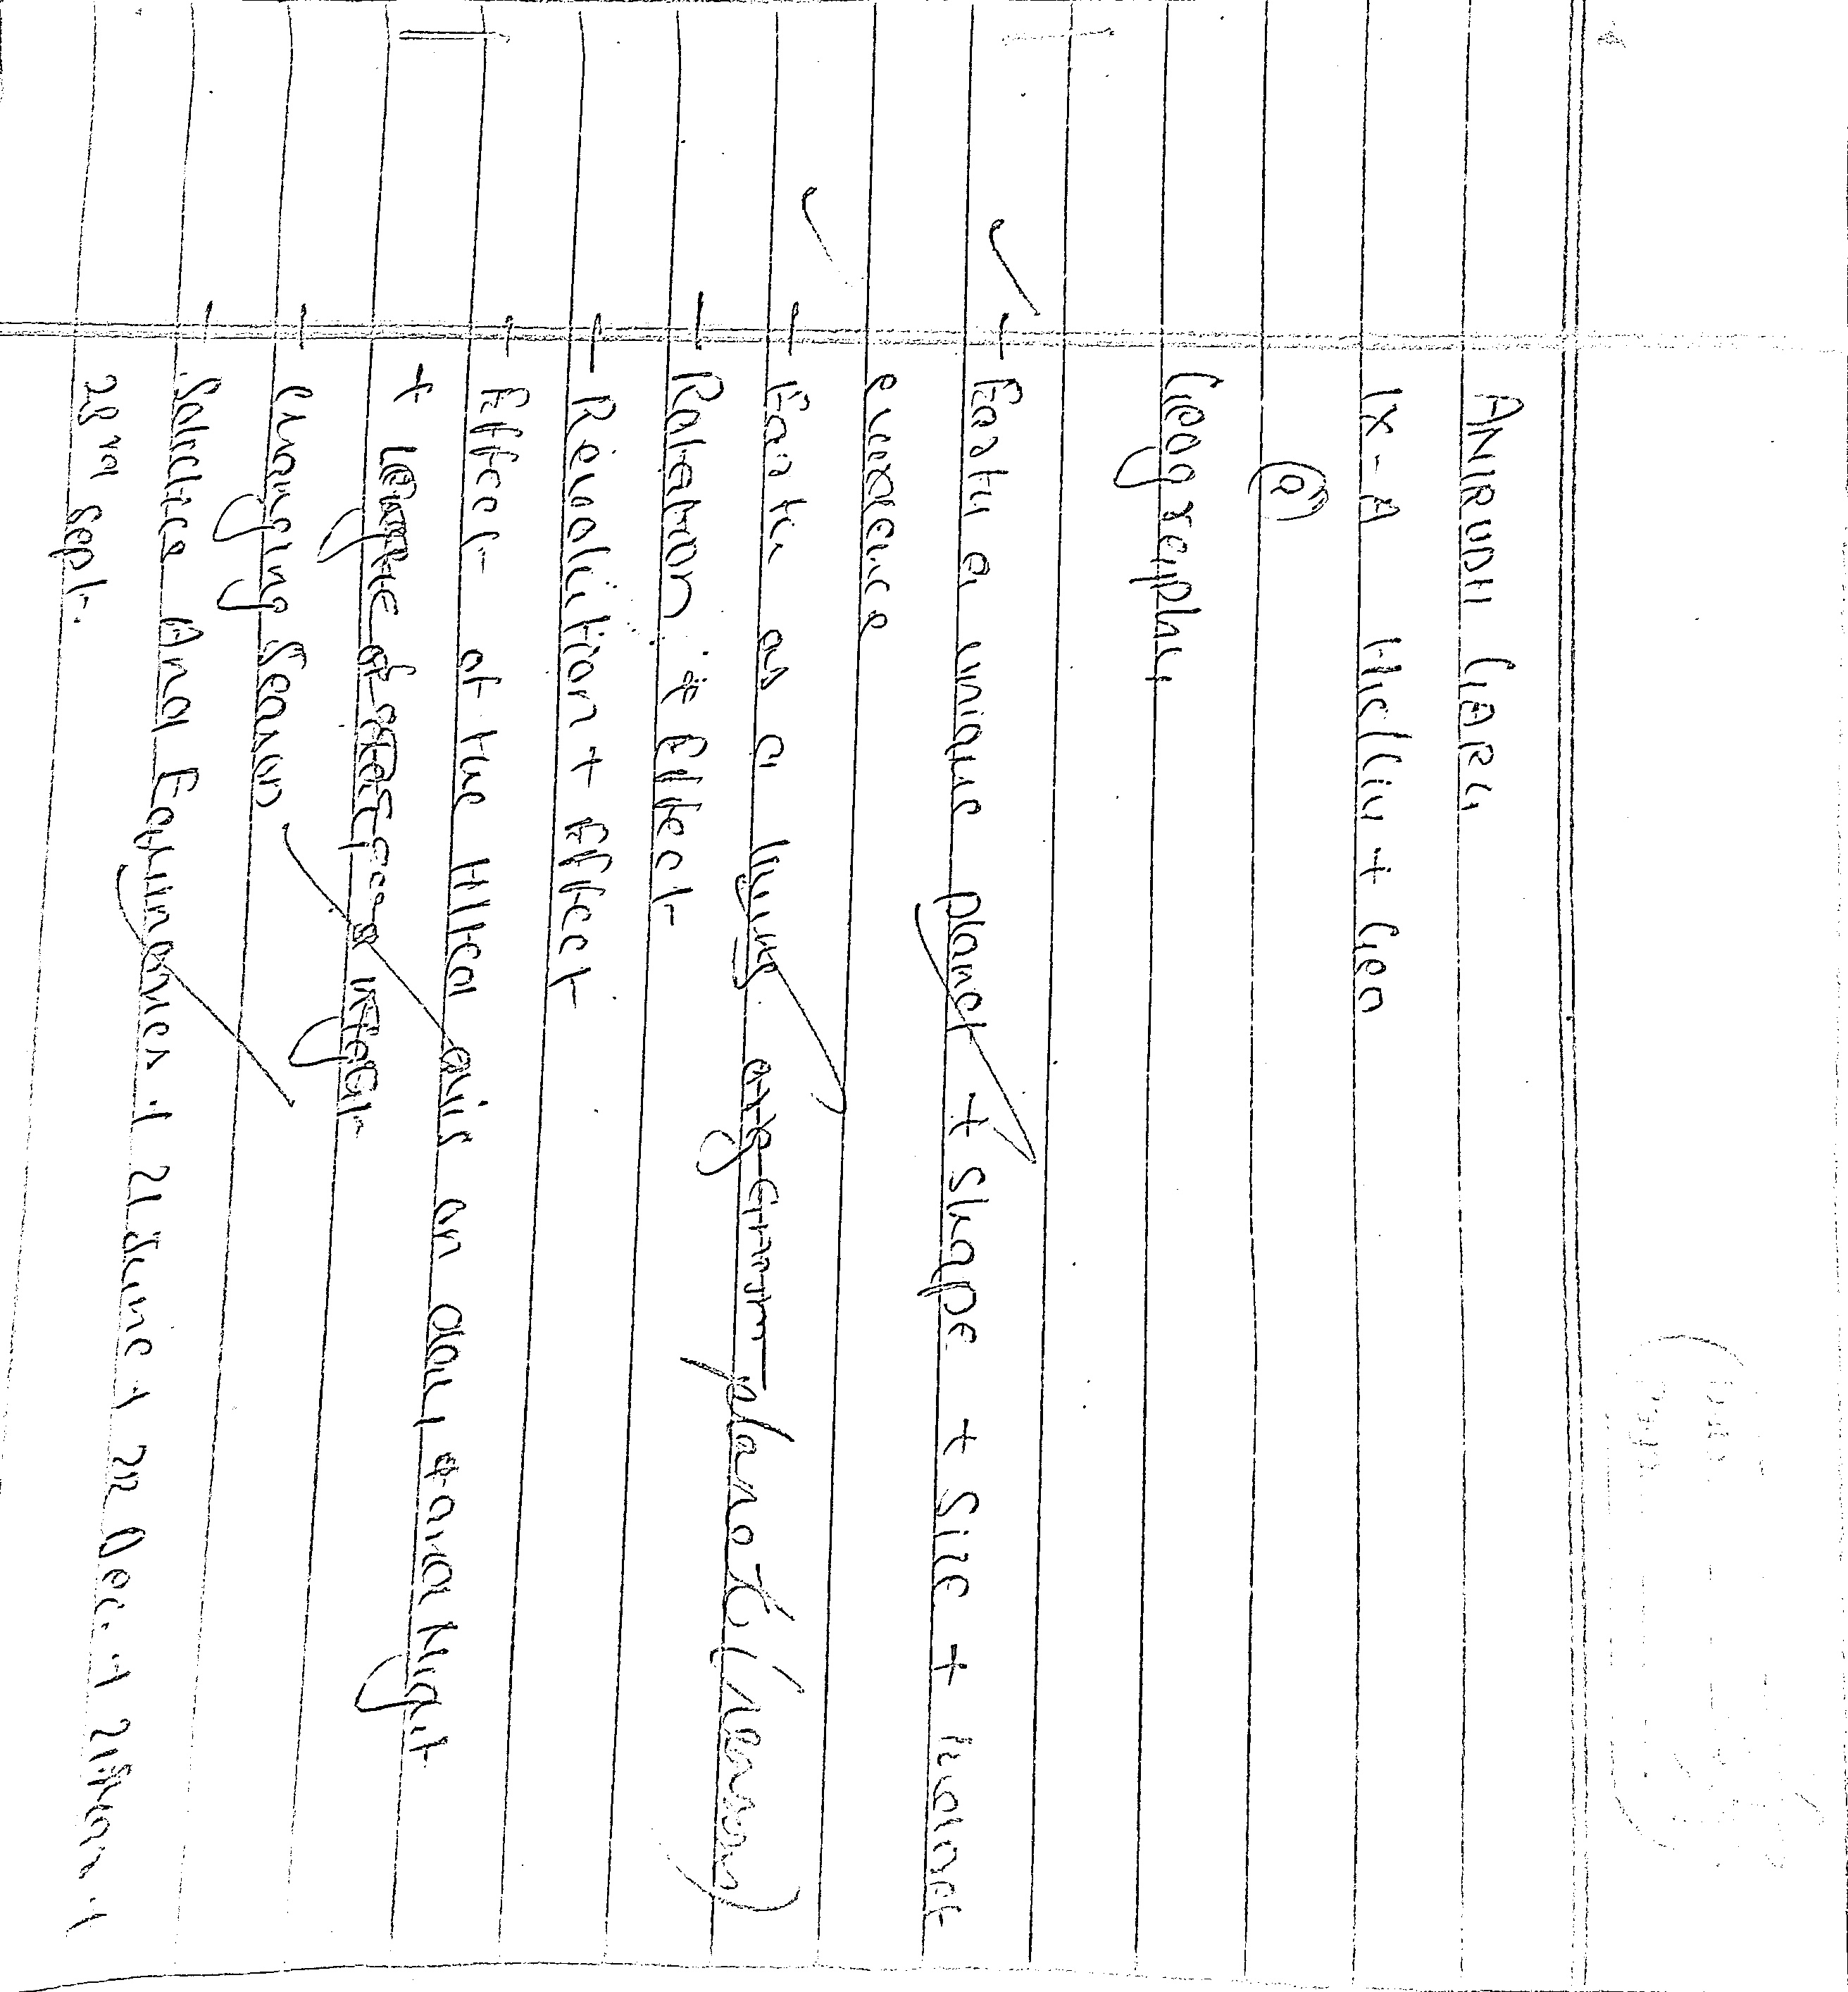 ANIRUDH GARG
IX-A Hiclin + Geo
@
Geography
- Earth a unique planet + Shape + Size +
evidence
- Earth as a living planet (Lesson)
- Rotation + Effect
- Revolution + Effect
- Effect of the tilted axis on day + and Night
+
Changing Season
- Solstice And Equinoxes + 21 June + 22 Dec. + 21 Mar +
Sept.